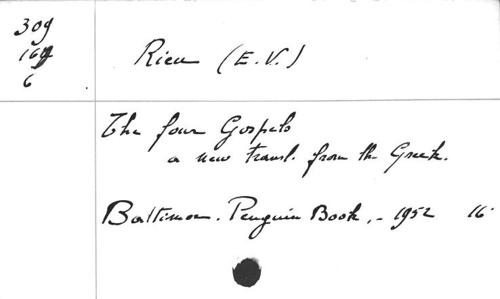 309
169
6
Rieu (E.V.)
The four Gospels
a new transl. from the Greek.
Baltimore. Penguin Book, - 1952 16°